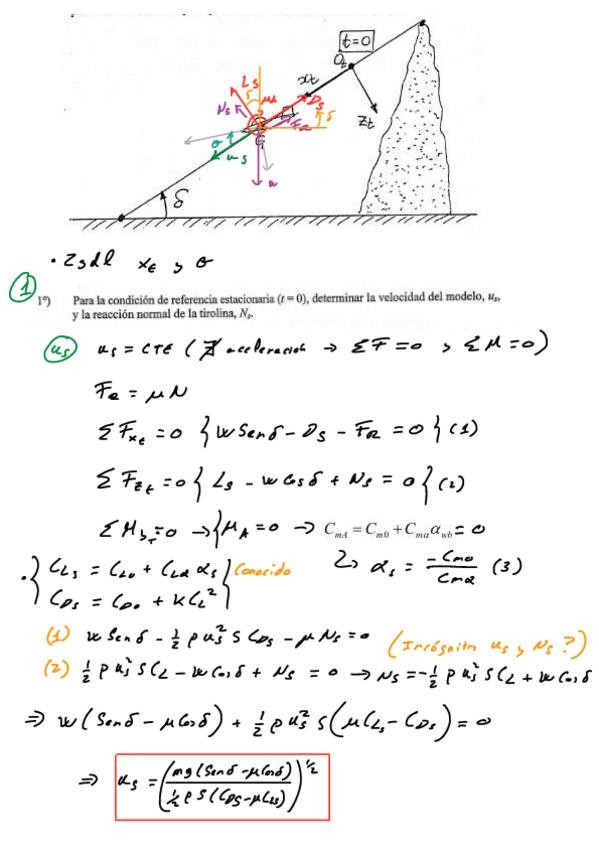 t=0
O_t
x_t
z_t
L_s
δ
N_s
D_s
F_R
δ
θ
u_s
G
δ
• 2gdl x_t y θ
①
1º) Para la condición de referencia estacionaria (t = 0), determinar la velocidad del modelo, u_s,
y la reacción normal de la tirolina, N_s.
u_s u_s = CTE ( ∄ aceleración → ΣF = 0 y ΣM = 0)
F_R = μN
ΣF_{x_t} = 0 { W Senδ - D_s - F_R = 0 } (1)
ΣF_{z_t} = 0 { L_s - W Cosδ + N_s = 0 } (2)
ΣM_{y_T} = 0 → { M_A = 0 → C_{mA} = C_{m0} + C_{mα} α_{wb} = 0
• { C_{Ls} = C_{L0} + C_{Lα} α_s } Conocido ↳ α_s = \frac{-C_{m0}}{C_{mα}} (3)
{ C_{Ds} = C_{D0} + K C_L^2 }
(1) W Senδ - ½ ρ u_s^2 S C_{Ds} - μ N_s = 0 (Incógnita u_s y N_s ?)
(2) ½ ρ u_s^2 S C_L - W Cosδ + N_s = 0 → N_s = -½ ρ u_s^2 S C_L + W Cosδ
⇒ W ( Senδ - μ Cosδ ) + ½ ρ u_s^2 S ( μ C_{Ls} - C_{Ds} ) = 0
⇒ u_s = ( \frac{mg (Senδ - μ Cosδ)}{½ ρ S (C_{Ds} - μ C_{Ls})} )^{1/2}